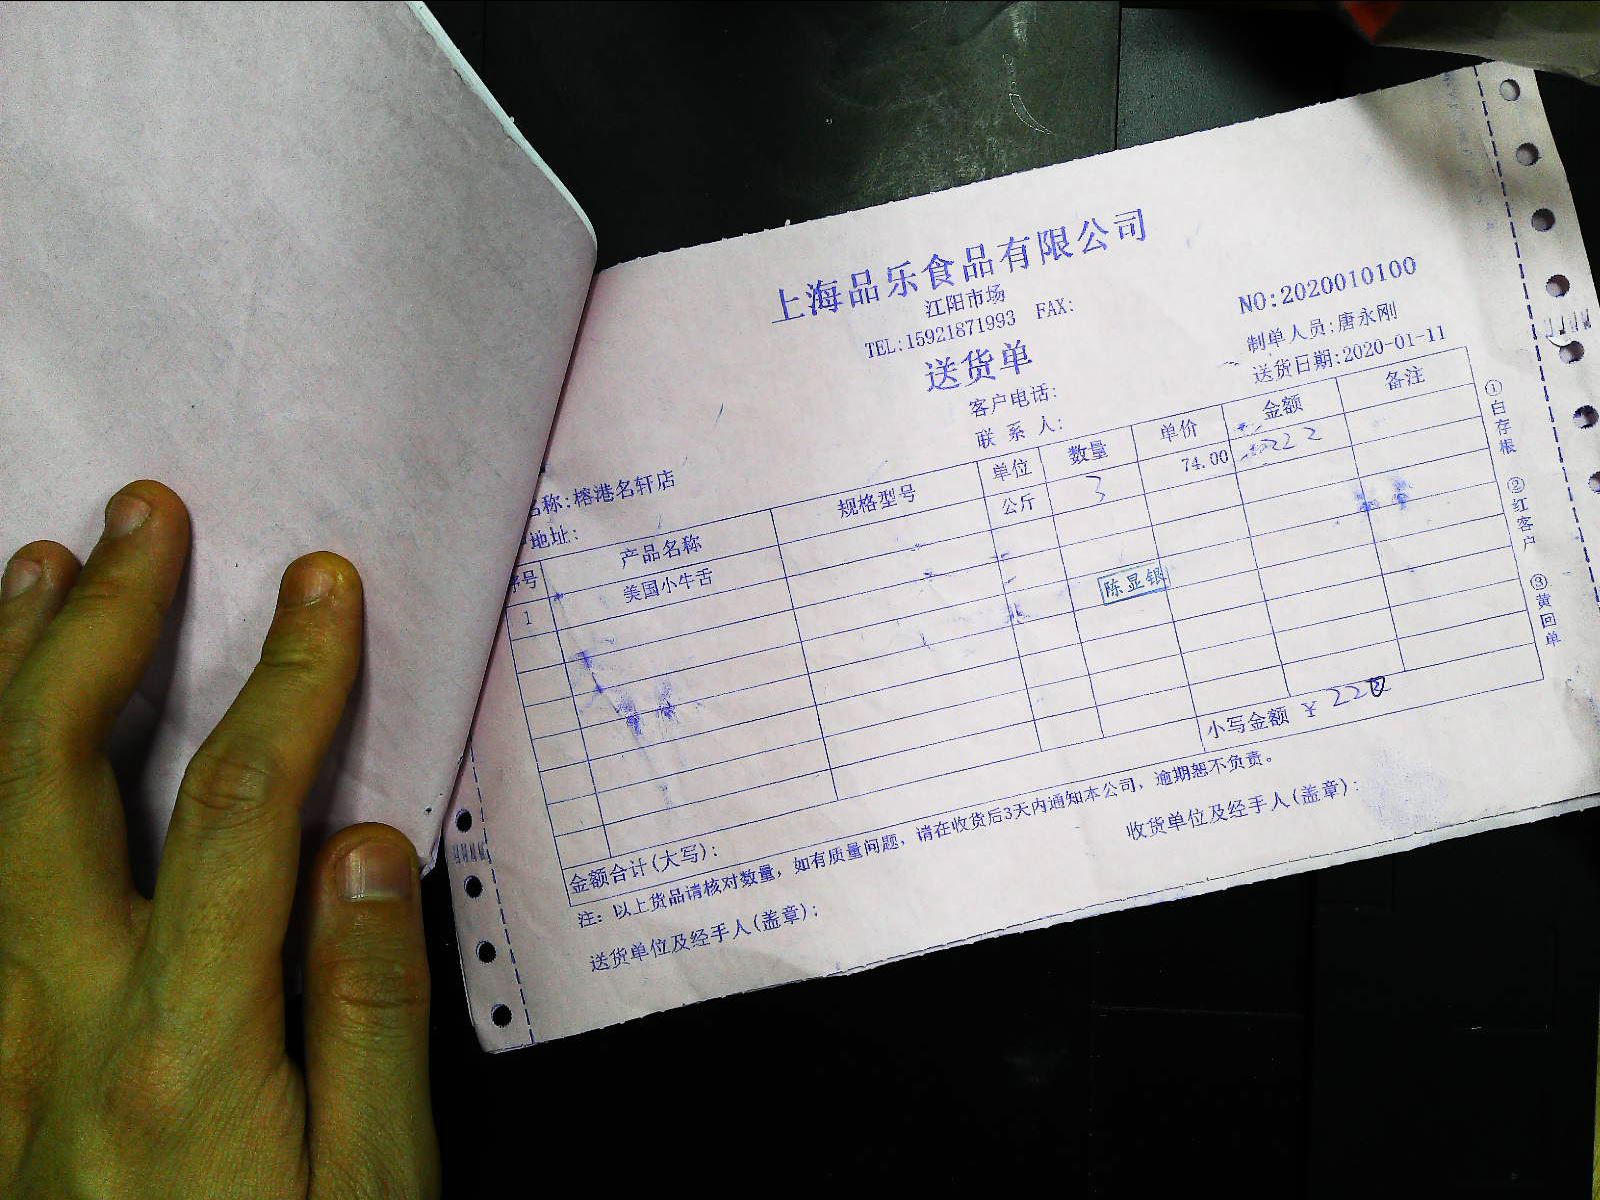 上海品乐食品有限公司
江阳市场
TEL:15921871993 FAX:
NO:2020010100
送货单
制单人员:唐永刚
客户电话:
送货日期:2020-01-11
联 系 人:
名称:榕港名轩店
地址:
序号 产品名称 规格型号 单位 数量 单价 金额 备注
1 美国小牛舌 公斤 3 74.00 222
陈显银
小写金额 ¥ 222
金额合计(大写):
注: 以上货品请核对数量, 如有质量问题, 请在收货后3天内通知本公司, 逾期恕不负责。
送货单位及经手人(盖章): 收货单位及经手人(盖章):
①白存根 ②红客户 ③黄回单